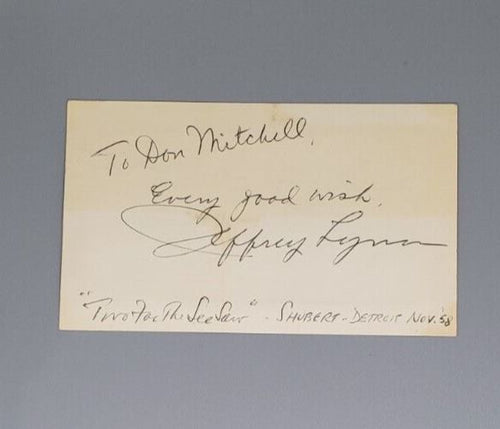 To Don Mitchell,
Every good wish.
Jeffrey Lynn
"Two For The SeeSaw" - SHUBERT - DETROIT NOV. '58